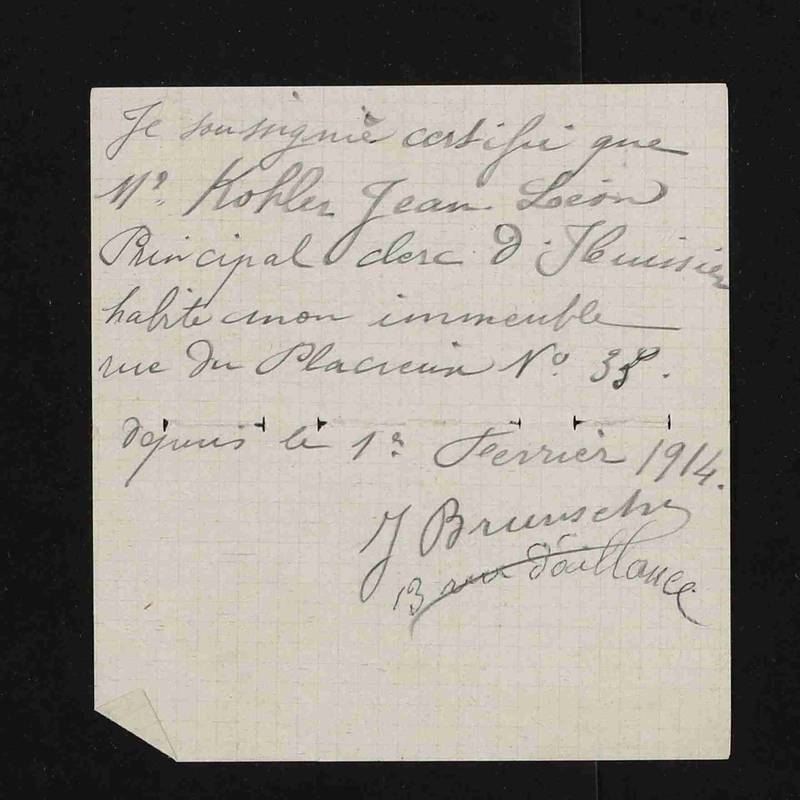 Je soussignié certifie que
Mr. Kohler Jean Léon
Principal clerc d'Huissier
habite mon immeuble
rue du Placieux No. 38.
depuis le 1er Ferrier 1914.
J Brunschw
13 rue